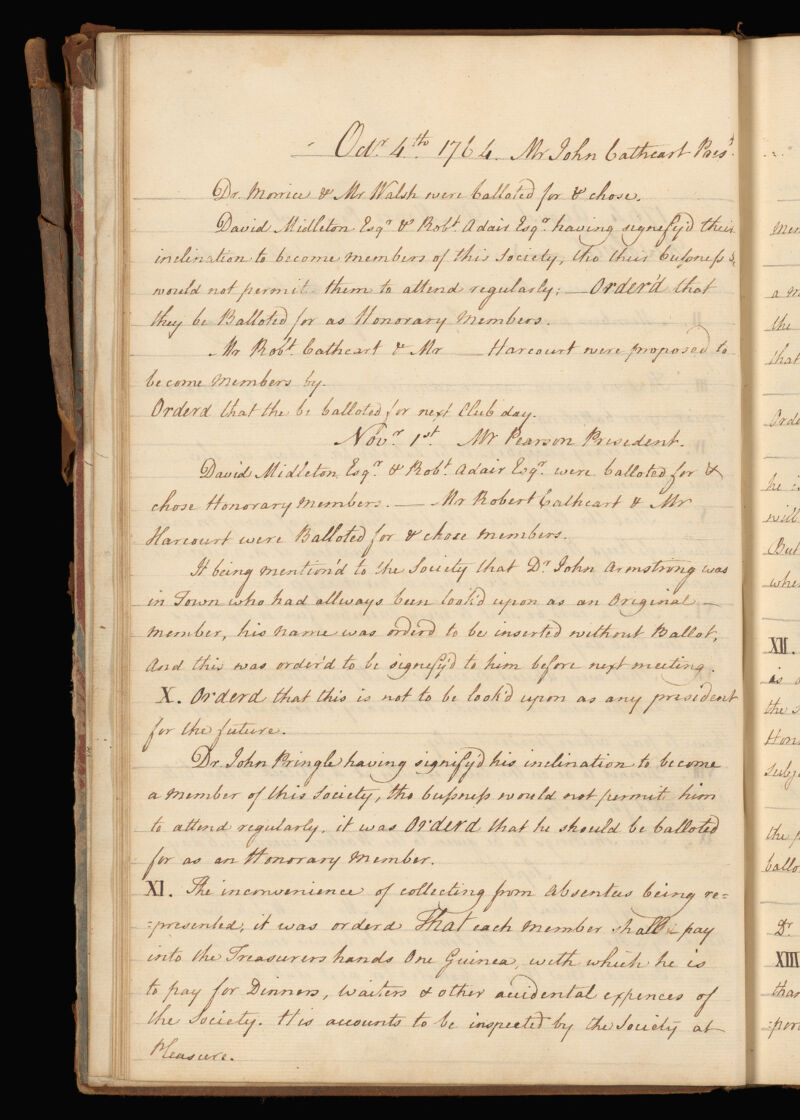 Octr. 4th. 1764. Mr John Cathcart Pres't.
Dr. Morrice & Mr Walsh were ballotted for & chose.
David Midleton Esqr. & Robt. Adair Esqr. having signefy'd their
inclination to become members of this Society, tho their bussness
would not permit them to attend regularly; — Order'd that
they be Balloted for as Honorary Members.
Mr Robt. Cathcart & Mr Harcourt were proposed to
become Members by.
Orderd that the be balloted for next Club day.
Novr. 1st. Mr Pearson President.
David Midleton Esqr. & Robt. Adair Esqr. were balloted for &
chose Honorary Members. — Mr Robert Cathcart & Mr
Harcourt were Balloted for & chose members.
It being mention'd to the Society that Dr. John Armstrong was
in Town who had allways been look'd upon as an Original —
Member, his name was orderd to be inserted without Ballot,
And this was order'd to be signefy'd to him before next meeting.
X. Orderd that this is not to be look'd upon as any president
for the future.
Dr. John Pringle having signify'd his inclination to become
a Member of this Society, tho bussness would not permit him
to attend regularly. it was Orderd that he should be balloted
for as an Honorary Member.
XI. The inconvenience of collecting from Absentees being re=
=presented, it was orderd That each Member shall pay
into the Treasurers hands One Guinea, with which he is
to pay for Dinners, Waiters & other accidental expences of
the Society. His accounts to be inspected by the Society at
Pleasure.
a
the
that
he
will
But
XII.
is
the
the
ballo
Dr
XIII